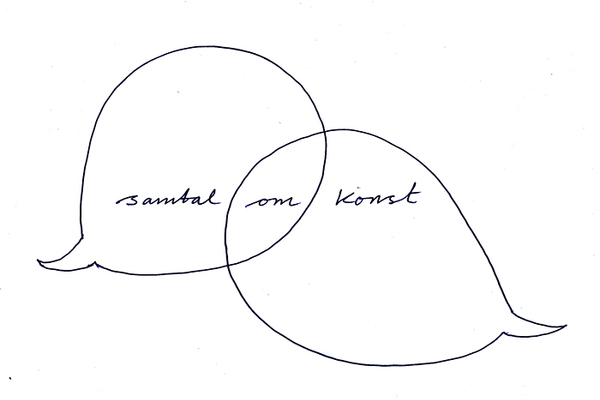 samtal om konst